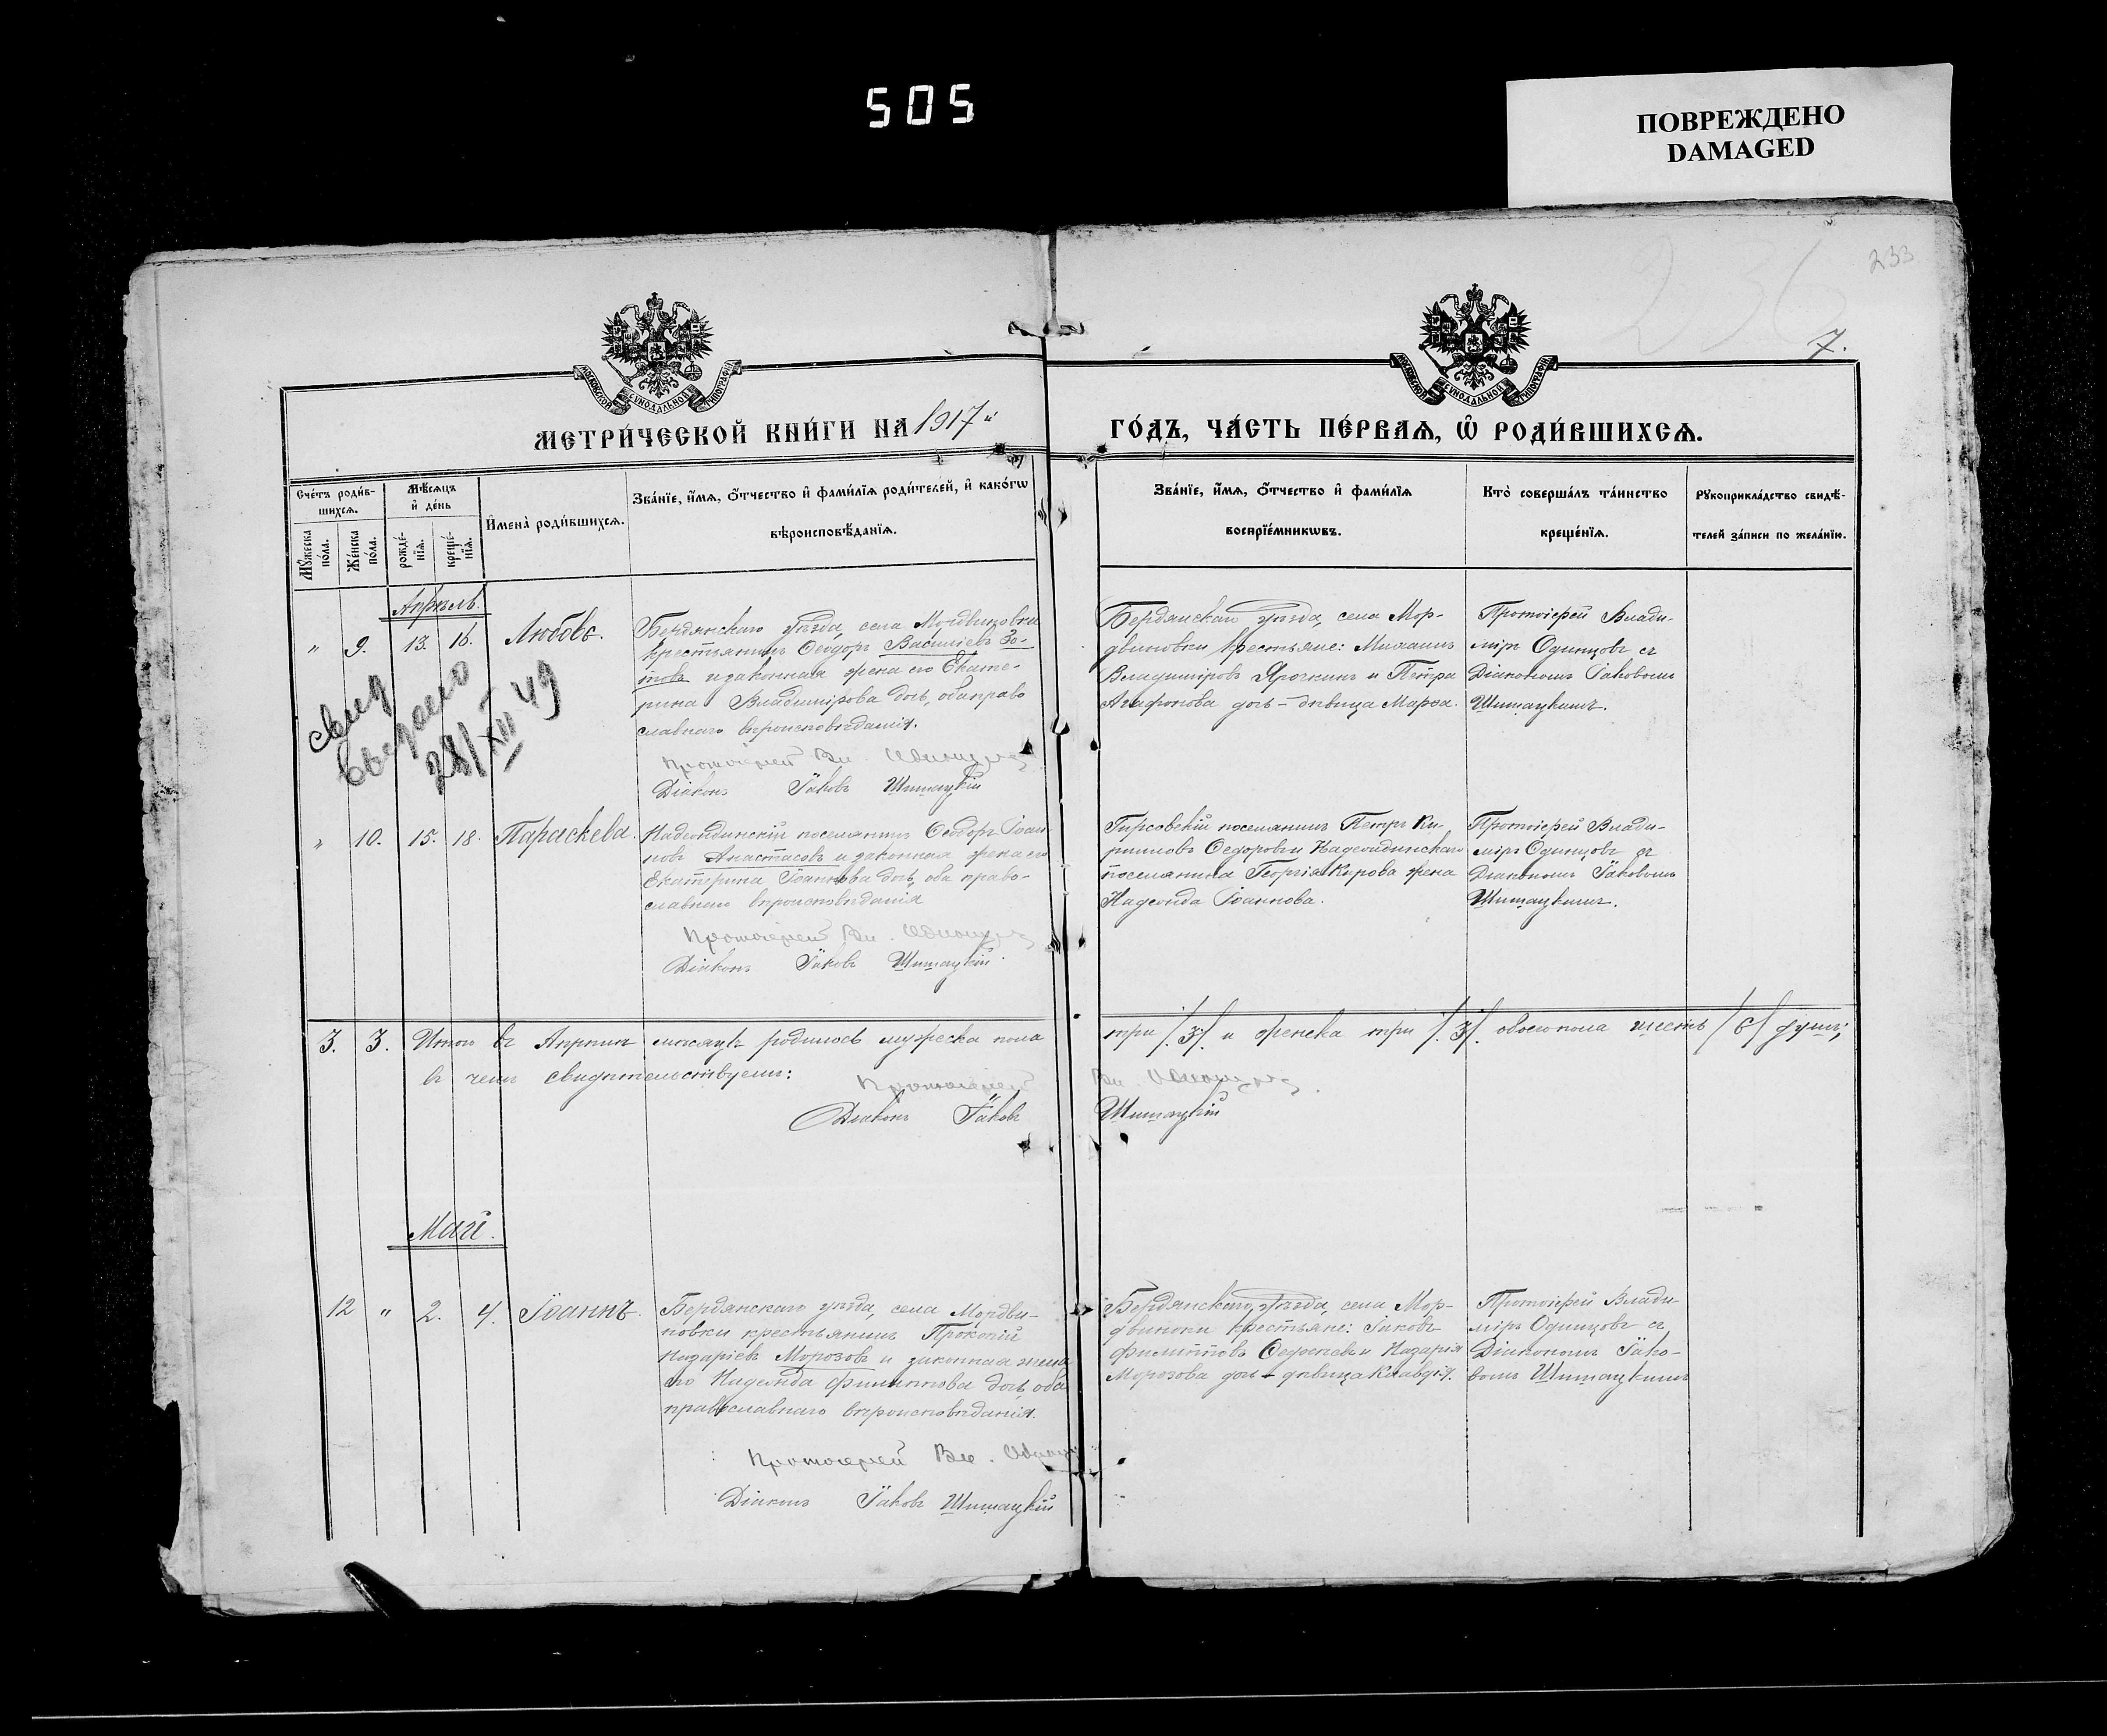 505
ПОВРЕЖДЕНО
DAMAGED
233
236
7.
МОСКОВСКОЙ СѴНОДАЛЬНОЙ ТИПОГРАФІИ
МОСКОВСКОЙ СѴНОДАЛЬНОЙ ТИПОГРАФІИ
МЕТРИ́ЧЕСКОЙ КНИ́ГИ НА 1917й ГО́ДЪ, ЧА́СТЬ ПЕ́РВАѦ, Ѡ РОДИ́ВШИХСѦ.
Сче́тъ роди́в-
шихсѧ.
Мꙋ́жеска по́ла.
Же́нска по́ла.
Мѣ́сѧцъ
и҆ де́нь
рожде́-
нїѧ.
креще́-
нїѧ.
И҆мена̀ роди́вшихсѧ.
Зва́нїе, и҆́мѧ, ѻ҆́тчество и҆ фами́лїѧ роди́телей, и҆ како́гѡ
вѣроисповѣ́данїѧ.
Зва́нїе, и҆́мѧ, ѻ҆́тчество и҆ фами́лїѧ
воспрїе́мникѡвъ.
Кто̀ соверша́лъ та́инство
креще́нїѧ.
Рꙋкоприкла́дство свидѣ́-
телей за́писи по жела́нїю.
Апрѣль.
" 9. 13. 16. Любовь.
Бердянскаго уѣзда, села Мордвиновки
крестьянинъ Ѳеодоръ Васильевъ Зо-
товъ и законная жена его Екате-
рина Владимірова дочь, оба право
славнаго вѣроисповѣданія.
Протоіерей Вл. Одинцовъ
Діаконъ Іаковъ Шишацкій
Бердянскаго уѣзда, села Мор-
двиновки крестьяне: Михаилъ
Владиміровъ Ярочкинъ и Петра
Агафонова дочь - дѣвица Марѳа.
Протоіерей Влади-
міръ Одинцовъ съ
Діакономъ Іаковомъ
Шишацкимъ.
свид
выдано
28/XII 49
" 10. 15. 18. Параскева.
Надеждинскій поселянинъ Ѳеодоръ Іоан
новъ Анастасовъ и законная жена его
Екатерина Іоаннова дочь, оба право-
славнаго вѣроисповѣданія
Протоіерей Вл. Одинцовъ
Діаконъ Іаковъ Шишацкій.
Гирсовскій поселянинъ Петръ Ки-
рилловъ Ѳедоровъ и Надеждинскаго
поселянина Георгія Кирова жена
Надежда Іоаннова.
Протоіерей Влади-
міръ Одинцовъ съ
Діакономъ Іаковомъ
Шишацкимъ.
3. 3. Итого въ Апрѣлѣ мѣсяцѣ родилось мужеска пола три /.3/. и женска три /.3/. обоего пола шесть /6/ душъ;
въ чемъ свидѣтельствуемъ: Протоіерей Вл. Одинцовъ.
Діаконъ Іаковъ Шишацкій
Май.
12 " 2. 4. Іоаннъ.
Бердянскаго уѣзда, села Мордви-
новки крестьянинъ Прокопій
Назаріевъ Морозовъ и законная жена
его Надежда Филиппова дочь, оба
православнаго вѣроисповѣданія.
Протоіерей Вл. Одинцовъ
Діаконъ Іаковъ Шишацкій
Бердянскаго, уѣзда, села Мор-
двиноки крестьяне: Іаковъ
Филипповъ и Назарія
Морозова дочь - дѣвица Клавдія.
Протоіерей Влади-
міръ Одинцовъ съ
Діакономъ Іако-
вомъ Шишацкимъ